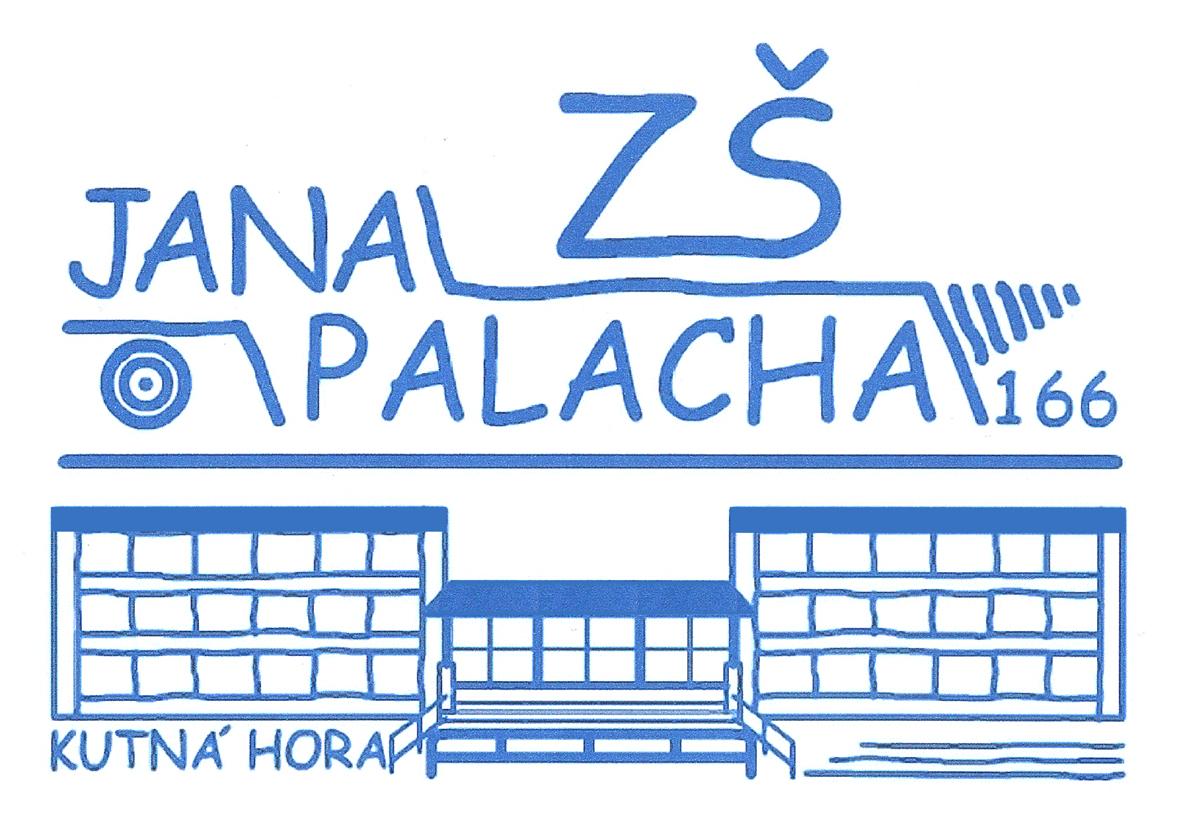 ZŠ
JANA
PALACHA 166
KUTNÁ HORA